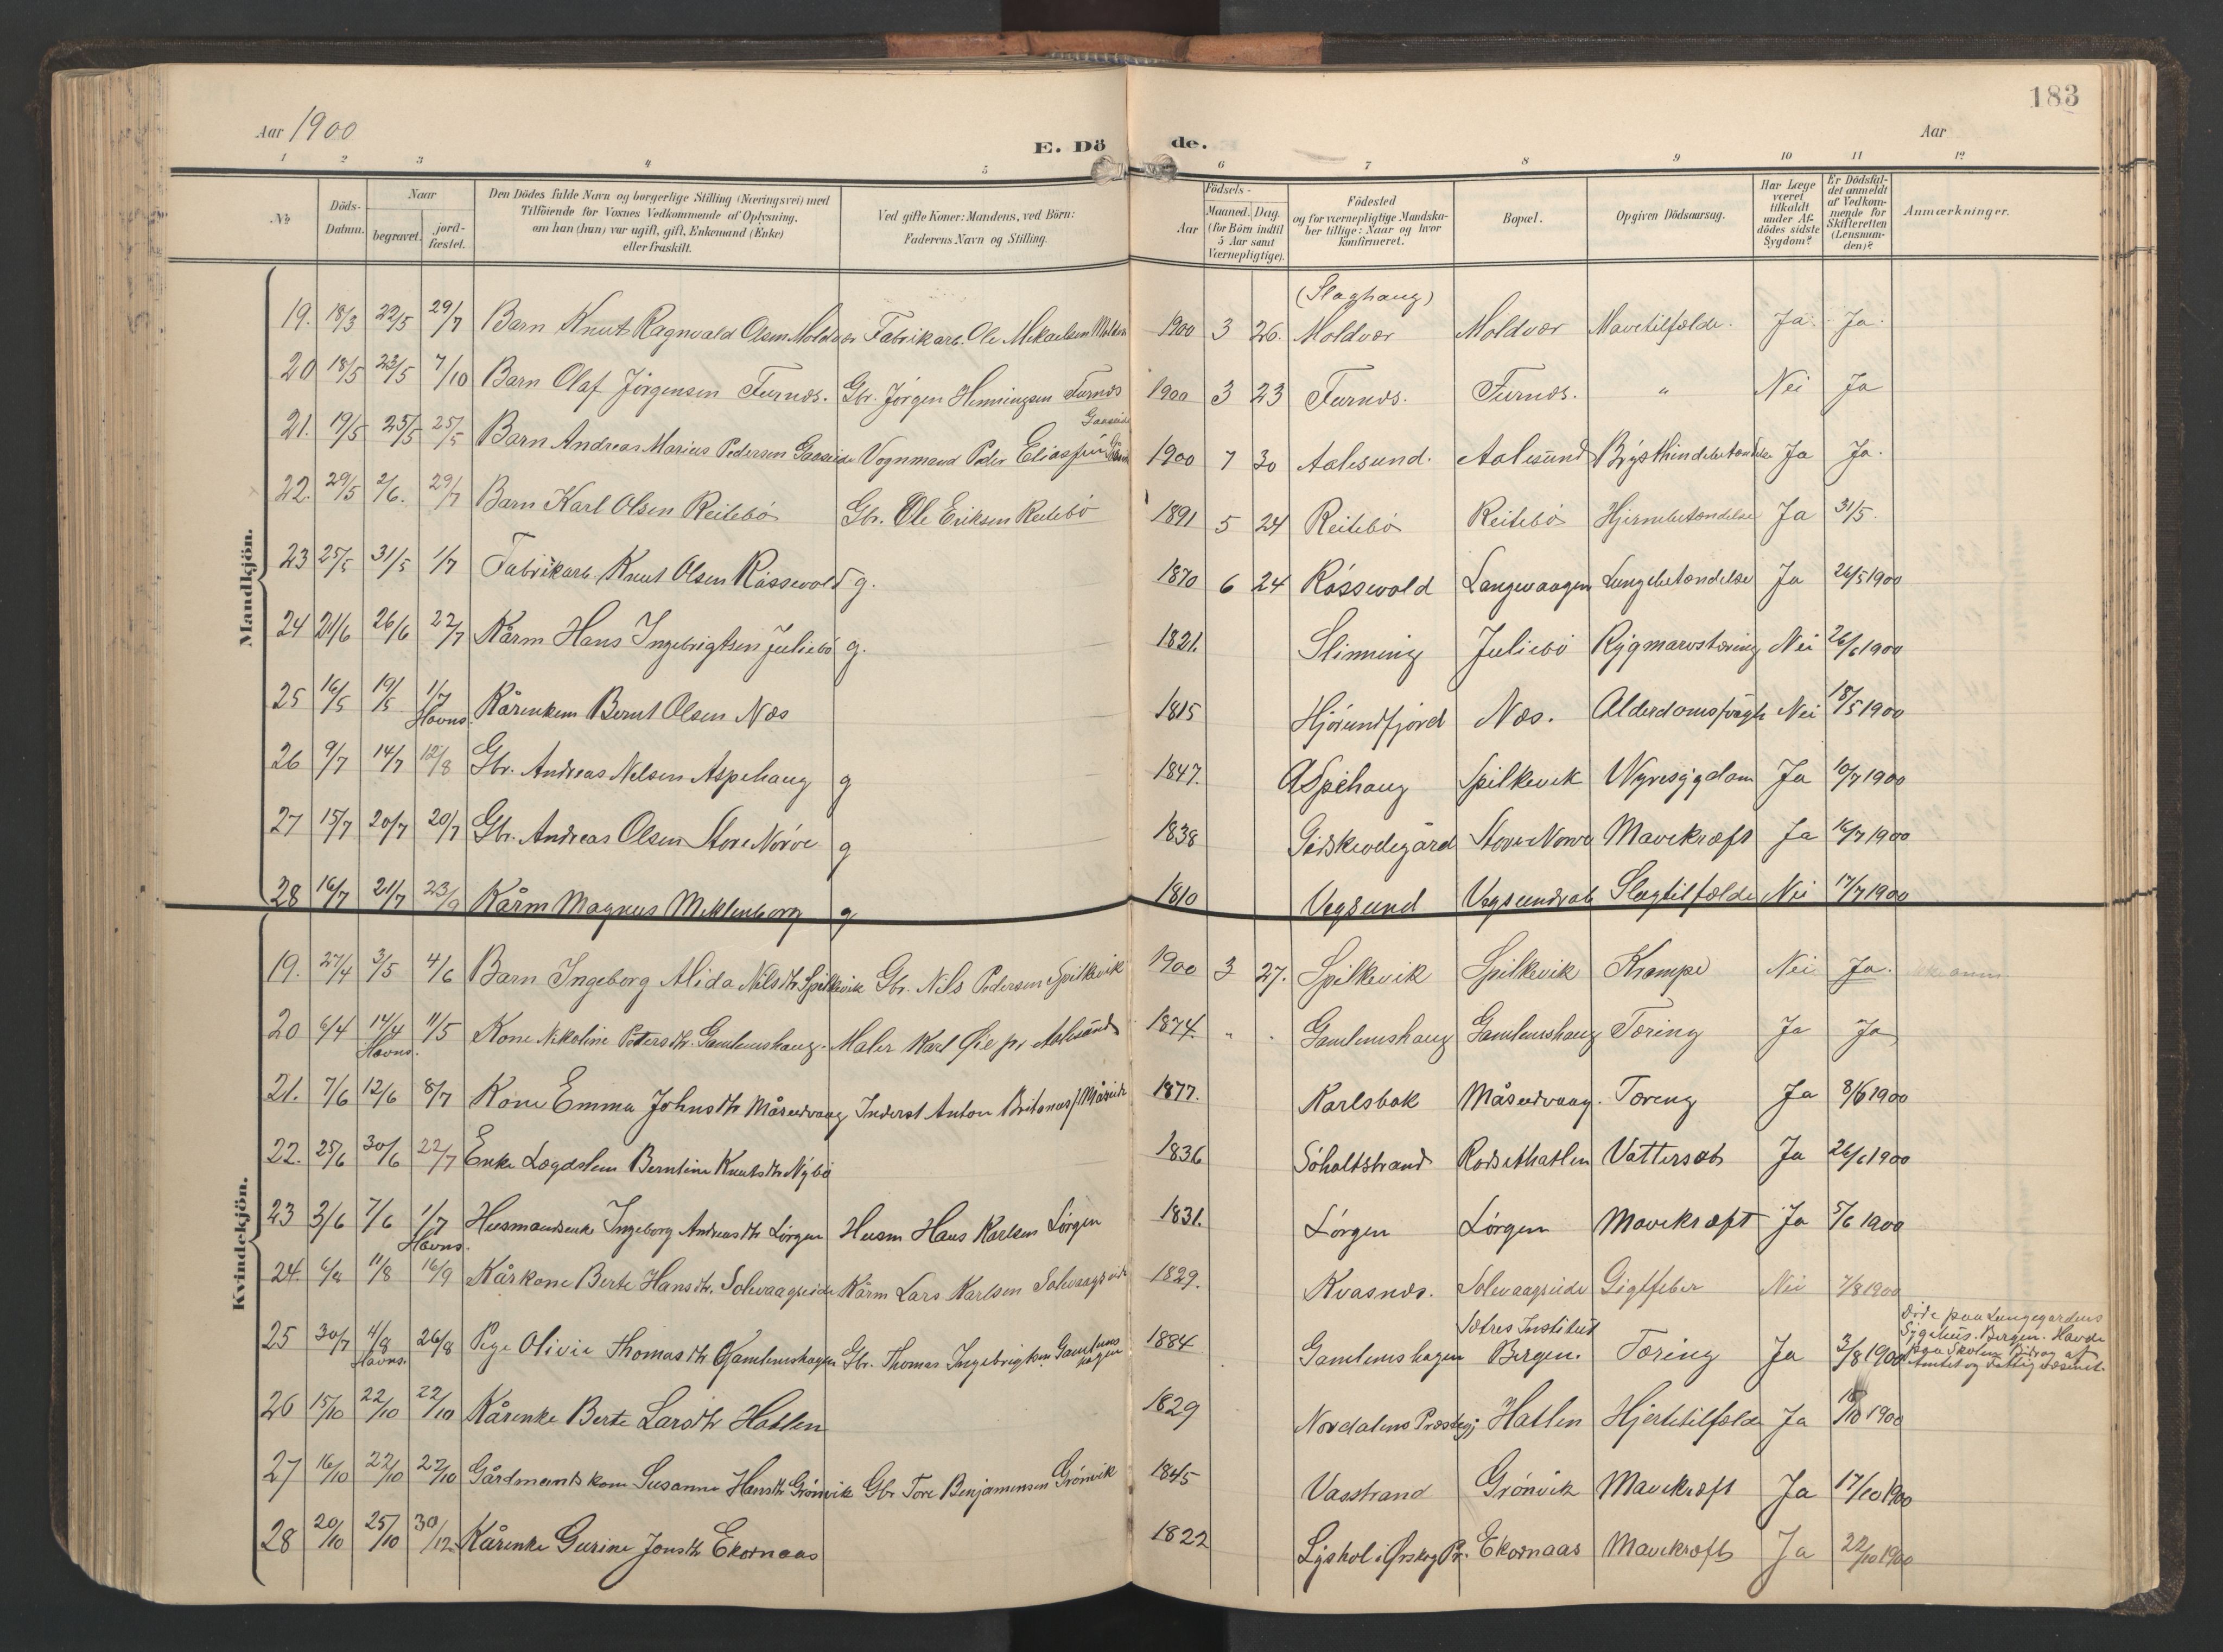 183
Aar 1900
E. Döde.
Aar
1 2 3 4 5 6 7 8 9 10 11 12
No
Döds-Datum.
Naar
begravet.
jord-fæstet.
Den Dödes fulde Navn og borgerlige Stilling (Næringsvei) med
Tilföiende for Voxnes Vedkommende af Oplysning,
om han (hun) var ugift, gift, Enkemand (Enke)
eller fraskilt.
Ved gifte Koner: Mandens, ved Börn:
Faderens Navn og Stilling.
Födsels-
Aar
Maaned. Dag.
(for Börn indtil
5 Aar samt
Værnepligtige).
Födested
og for værnepligtige Mandska-
ber tillige: Naar og hvor
konfirmeret.
Bopæl.
Opgiven Dödsaarsag.
Har Læge
været
tilkaldt
under Af-
dödes sidste
Sygdom?
Er Dödsfal-
det anmeldt
af Vedkom-
mende for
Skifteretten
(Lensman-
den)?
Anmærkninger.
Mandkjön.
(Slaghaug)
19. 18/3 22/5 29/7 Barn Knut Ragnvald Olsen Moldvær Fabrikarb. Ole Mikaelsen Moldvær 1900 3 26. Moldvær Moldvær Mavetilfælde. Ja. Ja.
20 18/5 23/5 7/10 Barn Olaf Jörgensen Furnæs. Gbr. Jörgen Henningsen Furnæs 1900 3 23 Furnæs. Furnæs. " Nei Ja
21. 19/5 25/5 25/5 Barn Andreas Marius Pedersen Gaaseide Vognmand Peder Eliassen Gaaseide 1900 7 30 Aalesund. Aalesund Brysthindebetændelse Ja Ja.
22. 29/5 2/6. 29/7 Barn Karl Olsen Reitebö Gbr. Ole Eriksen Reitebö 1891 5 24 Reitebö Reitebö Hjernebetændelse Ja 31/5.
23 25/5 31/5 1/7 Fabrikarb. Knut Olsen Rössevold g. 1870 6 24 Rössevold Langevaagen Lungebetændelse Ja 26/5 1900
24 21/6 26/6 22/7 Kårm Hans Ingebrigtsen Juliebö g. 1821. Slinning Juliebö Rygmarvstæring Nei 26/6 1900
25 16/5 19/5 1/7 Havns. Kårenkem Bernt Olsen Næs 1815 Hjörundfjord Næs. Alderdomssvagh Nei 18/5 1900
26 9/7 14/7 12/8 Gbr. Andreas Nelsen Aspehaug g 1847. Aspehaug Spilkevik Nyresygdom Ja 10/7 1900
27 15/7 20/7 20/7 Gbr. Andreas Olsen Store Nörve g 1838 Giskeødegård Store Nörve Mavekræft Ja 16/7 1900
28 16/7 21/7 23/9 Kårm Magnus Meklenborg g 1810 Vegsund Vegsundvåb Slagtilfælde Nei 17/7 1900
Kvindekjön.
19. 27/4 3/5 4/6 Barn Ingeborg Alida Nilsdtr Spilkevik Gbr. Nils Pedersen Spilkevik 1900 3 27. Spilkevik Spilkevik Krampe Nei Ja.
20 6/4 14/4 Havns. 11/5 Kone Nikoline Petersdtr. Gamlemshaug. Maler Karl Öie pr Aalesund 1874. " . Gamlemshaug Gamlemshaug Tæring Ja Ja
21. 7/6 12/6 8/7 Kone Emma Johnsdtr Måseidvaag Inderst Anton Britanus/Måseid 1877. Karlsbak Måseidvaag. Tæring Ja 8/6 1900
22. 25/6 30/6 22/7 Enke Lægdslem Berntine Knutsdtr Nybö 1836 Söholtstrand Rødsethatlen Vattersot Ja 26/6 1900
23 3/6 7/6 1/7 Havns. Husmandsenke Ingeborg Andreasdtr Lörgen Husm Hans Karlsen Lörgen 1831. Lörgen Lörgen Mavekræft Ja 5/6 1900
24. 6/8 11/8 16/9 Kårkone Berte Hansdtr. Solevaagseide Kårm Lars Karlsen Solevaagseide 1829. Kvasnæs. Solevaagseide Gigtfeber Nei 7/8 1900
25 30/7 4/8 Havns. 26/8 Pige Olivie Thomasdtr Gamlemshagen Gbr. Thomas Ingebrigtsen Gamlemshagen 1884 Gamlemshagen Sætres Institut Bergen. Tæring Ja 3/8 1900 Døde paa Lungegaardens
Sygehus. Bergen. Havde
paa Skolen Bidrag af
Amtet og Fattigvæsenet.
26 15/10 22/10 22/10 Kårenke Berte Larsdtr Hatlen 1829 Nordalens Præstegj Hatlen Hjertetilfælde Ja 18/10 1900
27 16/10 22/10 22/10 Gårdmandskone Susanne Hansdtr Grönvik Gbr Tore Benjaminsen Grönvik 1845 Vasstrand Grönvik Mavekræft Ja 17/10 1900
28 20/10 25/10 30/12 Kårenke Gurine Jonsdtr Ekornaas 1822 Lyshol i Ørskog Pr. Ekornaas Mavekræft Ja 22/10 1900